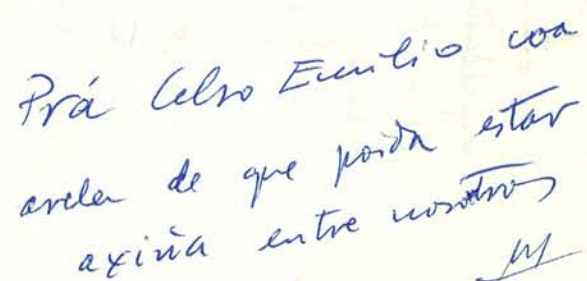 Prá Celso Emilio coa
arela de que poida estar
axiña entre nosotros